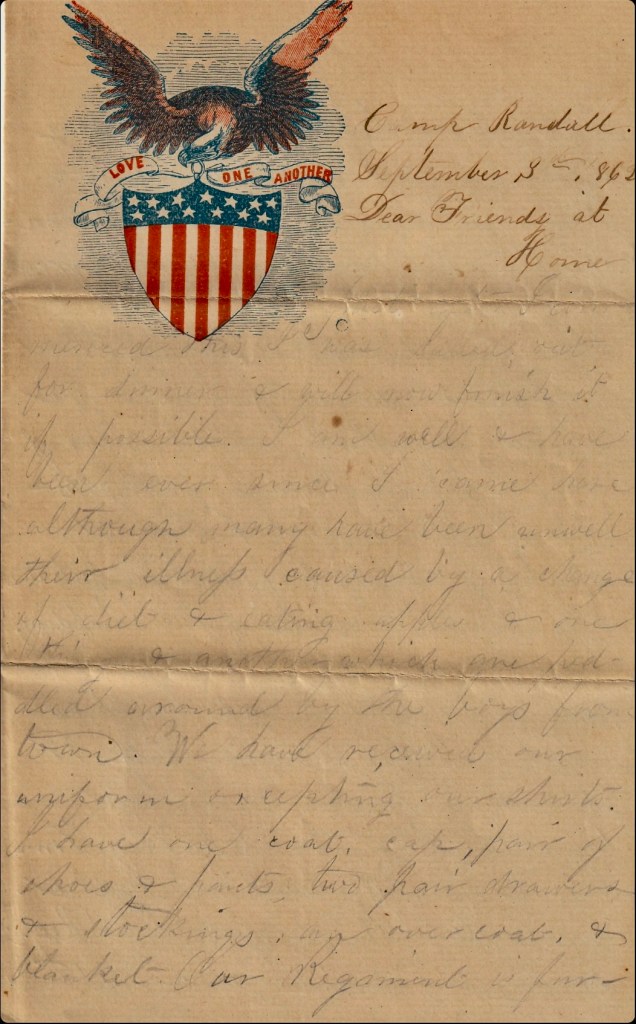 LOVE ONE ANOTHER
Camp Randall.
September 3rd, 1862
Dear Friends at
Home
menced this I was called out
for dinner & will now finish it
if possible. I am well & have
been ever since I came here
although many have been unwell
their illness caused by a change
of diet & eating apples & one
thing & another which are ped-
dled around by the boys from
town. We have received our
uniform excepting our shirts.
I have one coat, cap, pair of
shoes & pants, two pair drawers
& stockings, an overcoat, &
blanket. Our Regament is fur-